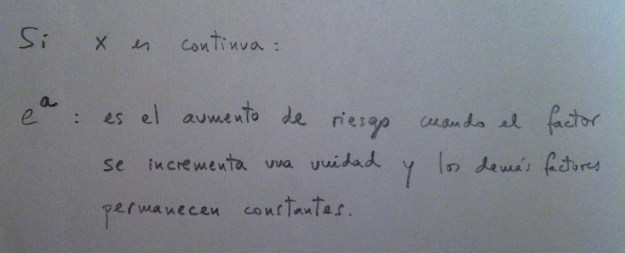 Si x es continua:
e^a : es el aumento de riesgo cuando el factor
se incrementa una unidad y los demás factores
permanecen constantes.